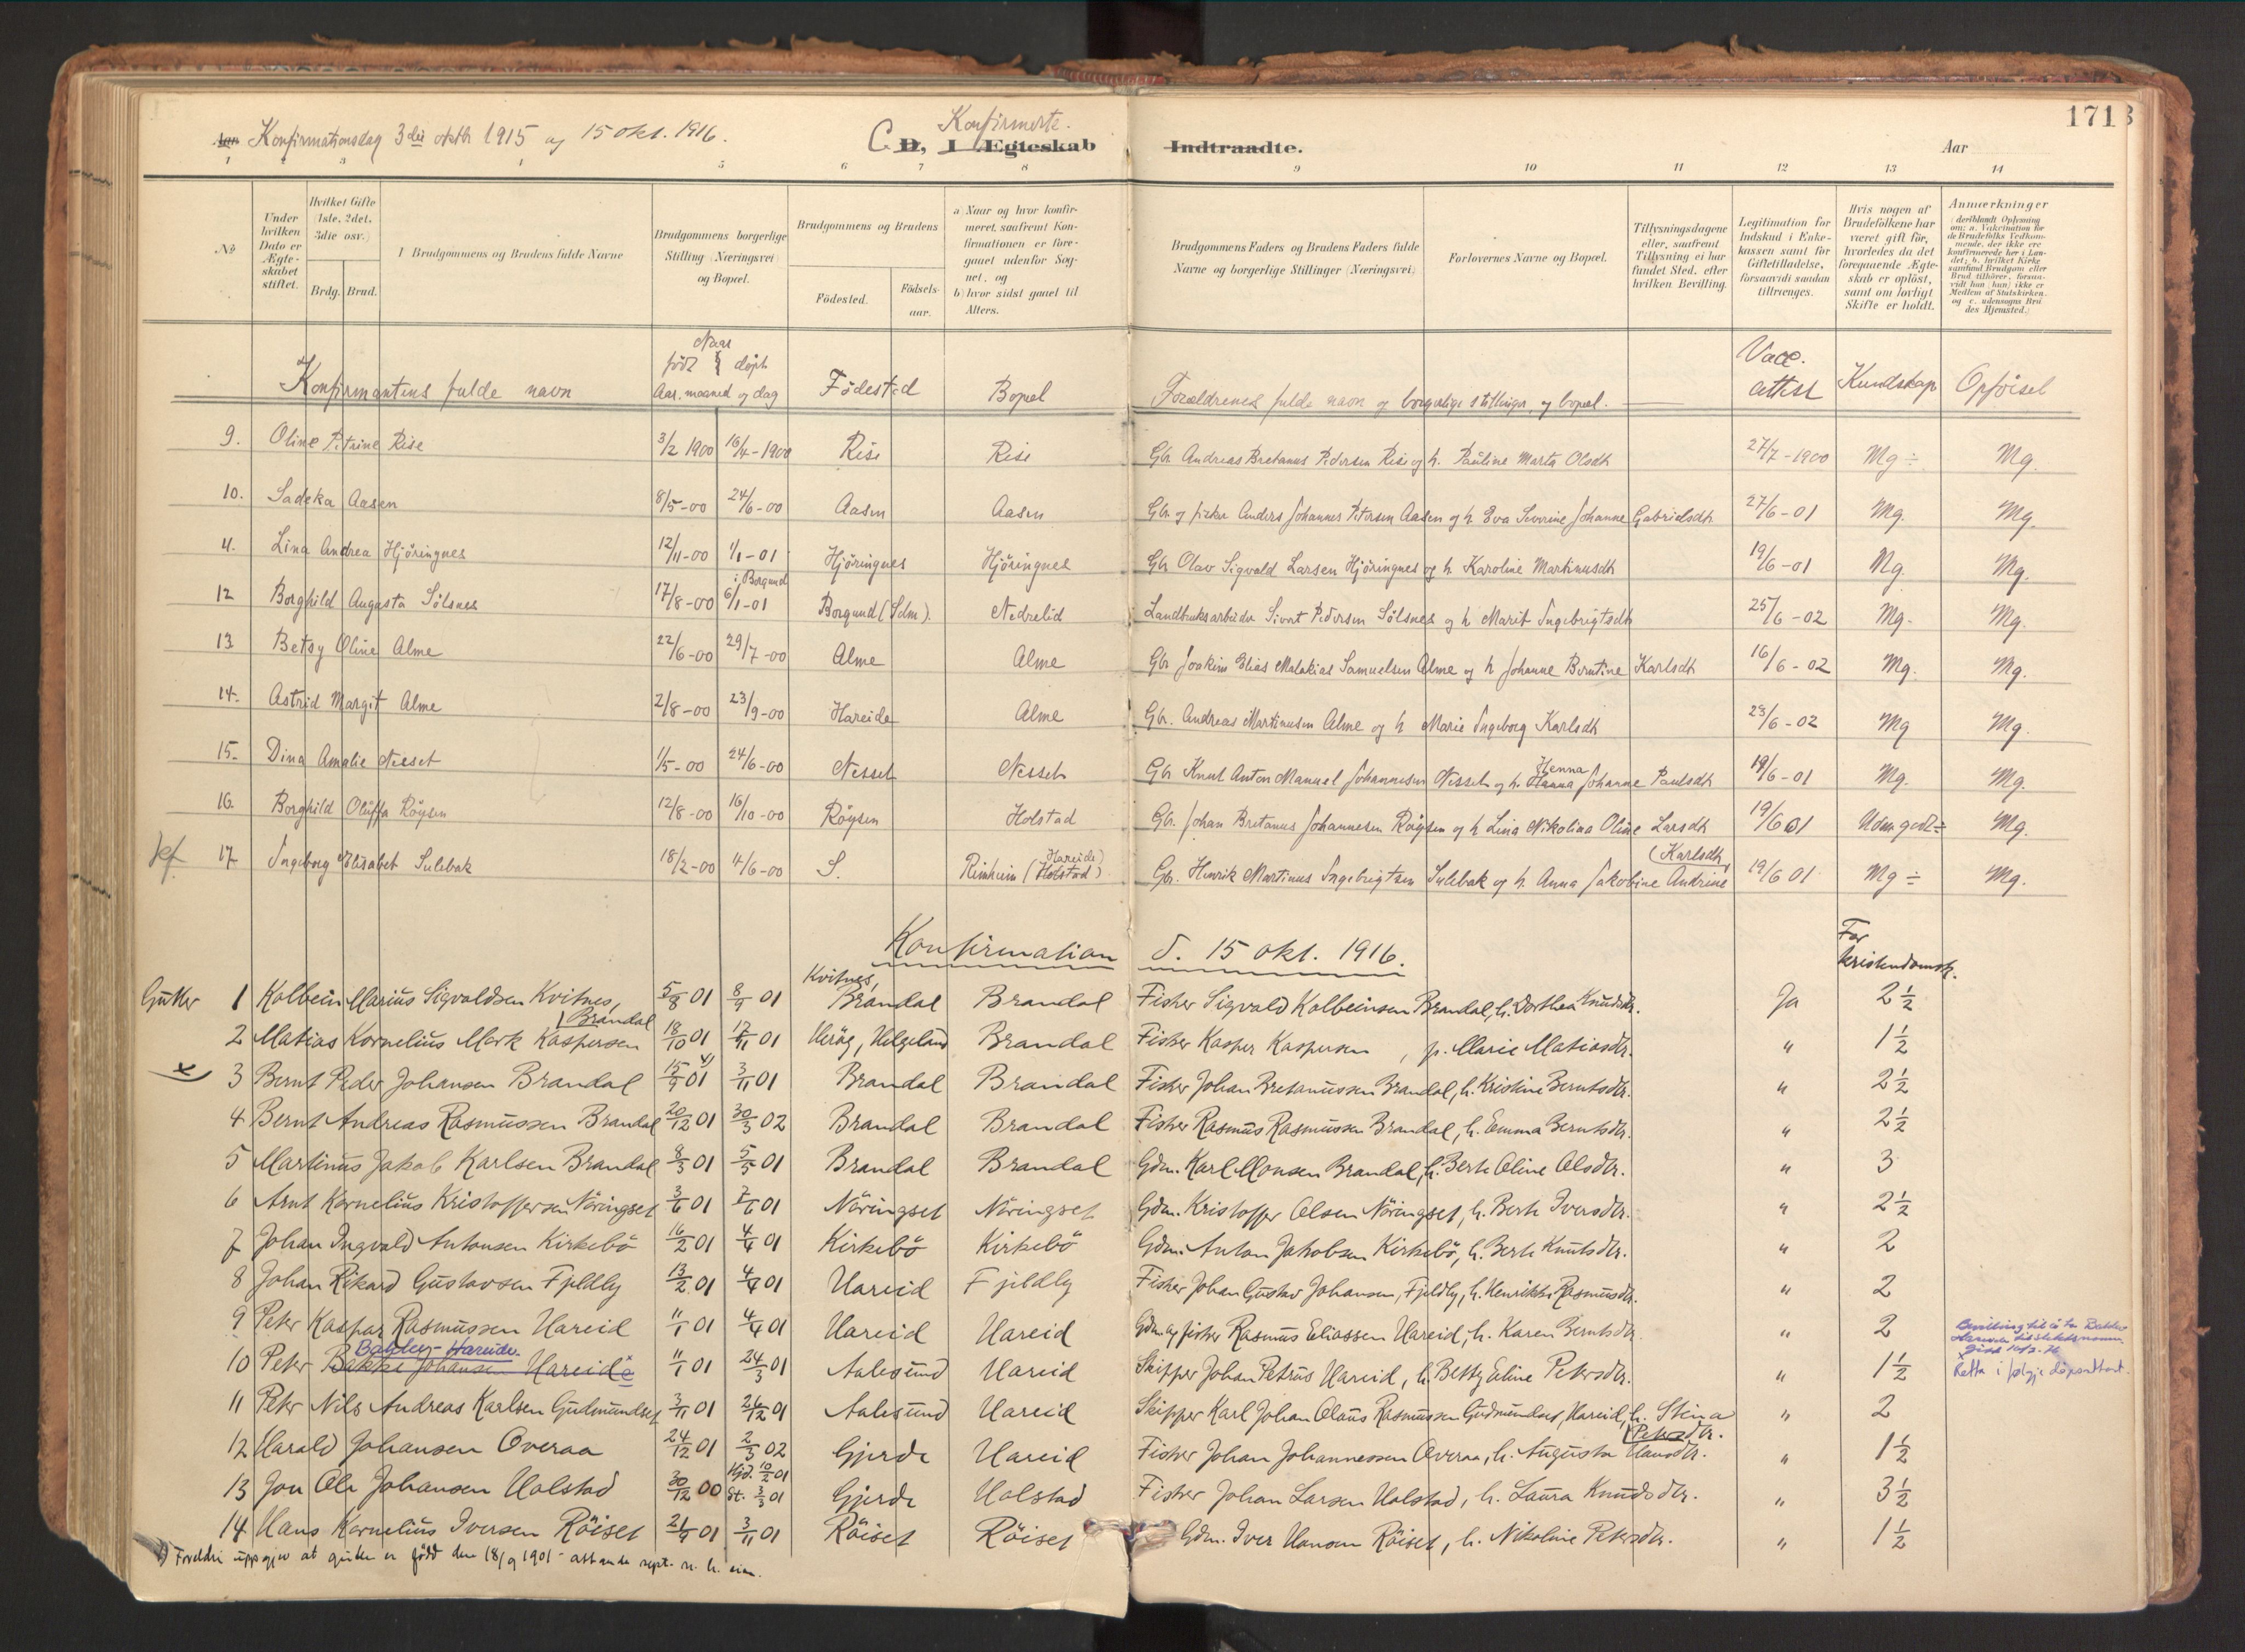 1713
Aar Konfirmationsdag 3die oktbr 1915 og 15 okt. 1916.
Konfirmerte.
C D, I Ægteskab Indtraadte. Aar
1 2 3 4 5 6 7 8 9 10 11 12 13 14
№
Under hvilken Dato er Ægteskabet stiftet.
Hvilket Gifte (1ste, 2det, 3die osv.)
Brdg. Brud.
I Brudgommens og Brudens fulde Navne
Brudgommens borgerlige Stilling (Næringsvei) og Bopæl.
Brudgommens og Brudens
Födested.
Födselsaar.
a) Naar og hvor konfirmeret, saafremt Konfirmationen er foregaaet udenfor Sognet, og
b) hvor sidst gaaet til Alters.
Brudgommens Faders og Brudens Faders fulde Navne og borgerlige Stillinger (Næringsvei)
Forlovernes Navne og Bopæl.
Tillysningsdagene eller, saafremt Tillysning ei har fundet Sted, efter hvilken Bevilling.
Legitimation for Indskud i Enkekassen samt for Giftetilladelse, forsaavidt saadan tiltrænges.
Hvis nogen af Brudefolkene har været gift før, hvorledes da det foregaaende Ægteskab er oplöst, samt om lovligt Skifte er holdt.
Anmærkninger (deriblandt Oplysning om: a. Vakcination for de Brudefolks Vedkommende, der ikke ere konfirmerede her i Landet; b. hvilket Kirkesamfund Brudgom eller Brud tilhörer, forsaavidt han (hun) ikke er Medlem af Statskirken, og c. udensogns Brudes Hjemsted.)
Konfirmantens fulde navn Naar född döpt Aar, maaned og dag Födested Bopæl Forældrenes fulde navn og borgerlige stillinger, og bopæl. Vacc. attest Kundskap Opförsel
9. Oline Petrine Rise 3/2 1900 16/4-1900 Rise Rise Gbr Andreas Bretanus Pedersen Rise og h. Pauline Marta Olsdtr 27/7-1900 Mg ÷ Mg.
10. Sadeka Aasen 8/5-00 24/6-00 Aasen Aasen Gbr. og fisker Anders Johannes Petersen Aasen og h. Eva Severine Johanne Gabrielsdtr 27/6-01 Mg. Mg.
11. Lina Andrea Hjöringnes 12/11-00 1/1-01 Hjöringnes Hjöringnes Gbr Olav Sigvald Larsen Hjöringnes og h Karoline Martinusdtr 19/6-01 Mg Mg.
12 Borghild Augusta Sölsnes 17/8-00 i Borgund 6/1-01 Borgund (Sdm). Nedrelid Landbruksarbeider Sivert Pedersen Sölsnes og h Marit Ingebrigtsdtr 25/6-02 Mg. Mg.
13 Betsy Oline Alme 22/6-00 29/7-00 Alme Alme Gbr Joakim Elias Malakias Samuelsen Alme og h Johanne Berntine Karlsdtr 16/6-02 Mg. Mg.
14. Astrid Margit Alme 2/8-00 23/9-00 Hareide Alme Gbr. Andreas Martinusen Alme og h Marie Ingeborg Karlsdtr 23/6-02 Mg Mg.
15. Dina Amalie Nesset 1/5-00 24/6-00 Nesset Nesset Gbr Knut Anton Manuel Johannesen Nesset og h. Hanna Henna Johanne Paulsdtr 19/6-01 Mg. Mg.
16. Borghild Oluffa Röysen 12/8-00 16/10-00 Röysen Holstad Gbr. Johan Bretanus Johannesen Röysen og h Lina Nikolina Oline Larsdtr 19/6 01 Udm godt ÷ Mg.
17. Ingeborg Elisabet Sulebak 18/2-00 4/6-00 S. Rimheim (Holstad) Hareide) Gbr. Henrik Martinus Ingebrigtsen Sulebak og h. Anna Jakobine Andrine (Karlsdtr 19/6 01 Mg ÷ Mg.
Konfirmation d. 15 okt. 1916.
For kristendomsk.
Gutter 1 Kolbein Marius Sigvaldsen Kvitnes, 5/8 01 8/9 01 Kvitnes, Brandal Brandal Fisker Sigvald Kolbeinsen Brandal, h. Dorthea Knudsdtr. Ja 2 1/2
2 Matias Kornelius Mork Kaspersen (Brandal 18/10 01 17/11 01 Heröy, Helgeland Brandal Fisker Kasper Kaspersen, p. Marie Matiasdtr. " 1 1/2
x 3 Bernt Peder Johansen Brandal 15/9 01 x) 3/11 01 Brandal Brandal Fisker Johan Bretanussen Brandal, h. Kristine Berntsdtr. " 2 1/2
4 Bernt Andreas Rasmussen Brandal 20/12 01 30/3 02 Brandal Brandal Fisker Rasmus Rasmussen Brandal, h. Emma Berntsdtr. " 2 1/2
5 Martinus Jakob Karlsen Brandal 8/3 01 5/5 01 Brandal Brandal Gdm. Karl Monsen Brandal, h. Berte Oline Olsdtr. " 3
6 Arnt Kornelius Kristoffersen Nöringset 3/6 01 7/6 01 Nöringset Nöringset Gdm. Kristoffer Olsen Nöringset, h. Berte Iversdtr. " 2 1/2
7 Johan Ingvald Antonsen Kirkebö 16/2 01 4/4 01 Kirkebö Kirkebö Gdm. Anton Jakobsen Kirkebö, h. Berte Knutsdtr. " 2
8 Johan Rikard Gustavsen Fjeldly 13/2 01 4/4 01 Hareid Fjeldly Fisker Johan Gustav Johansen, Fjeldly, h. Henrikke Rasmusdtr. " 2
9 Peter Kaspar Rasmussen Hareid 11/1 01 4/4 01 Hareid Hareid Gdm. og fisker Rasmus Eliassen Hareid, h. Karen Berntsdtr. " 2
10 Peter Bakke Johansen Hareid Bakkev-Hareide. 11/1 01 24/3 01 Aalesund Hareid Skipper Johan Petrus Hareid, h. Betty Eline Petersdtr. " 1 1/2 Retta i fölgje döpsattest.
11 Peter Nils Andreas Karlsen Gudmundset 3/11 01 26/12 01 Aalesund Hareid Skipper Karl Johan Olaus Rasmussen Gudmundset, Hareid, h. Stina (Petersdtr. " 2
12 Harald Johansen Overaa 24/12 01 2/3 02 Gjerde Hareid Fisker Johan Johannessen Overaa, h. Augusta Hansdtr. " 1 1/2
13 Jon Ole Johansen Holstad 30/12 00 Hjd. 10/2 01 St. 3/3 01 Gjerde Holstad Fisker Johan Larsen Holstad, h. Laura Knudsdtr. " 3 1/2
14 Hans Kornelius Iversen Röiset 21/9 01 3/11 01 Röiset Röiset Gdm. Iver Hansen Röiset, h. Nikoline Petersdtr. " 1 1/2
x) Foreldri uppgjev at guten er född den 18/9 1901